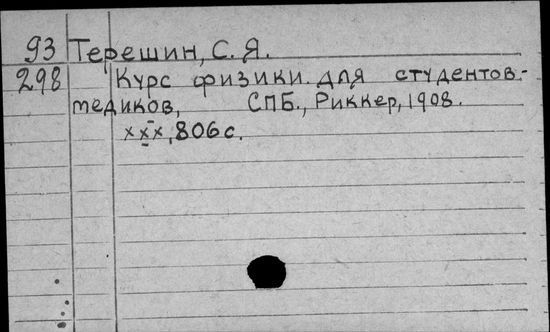 93 Терешин, С. Я.
298 Курс физики для студентов-
медиков, СПБ., Риккер, 1908.
xxx, 806 с.